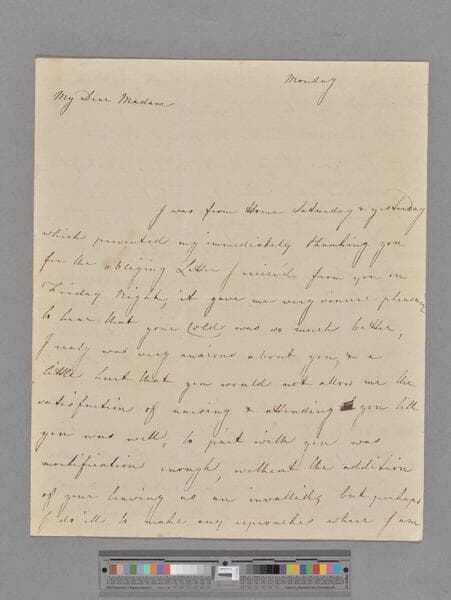 Monday
My Dear Madam
I was from Home Saturday & yesterday
which prevented my immediately thanking you
for the obliging Letter I receivd from you on
Friday Night, it gave me very sincere pleasure
to hear that your Cold was so much better,
I realy was very anxious about you, & a
little hurt that you would not allow me the
satisfaction of nursing & attending you till
you was well, to part with you was
mortification enough, without the addition
of your leaving us an invallid, but perhaps
I do ill to make any reproaches where I am